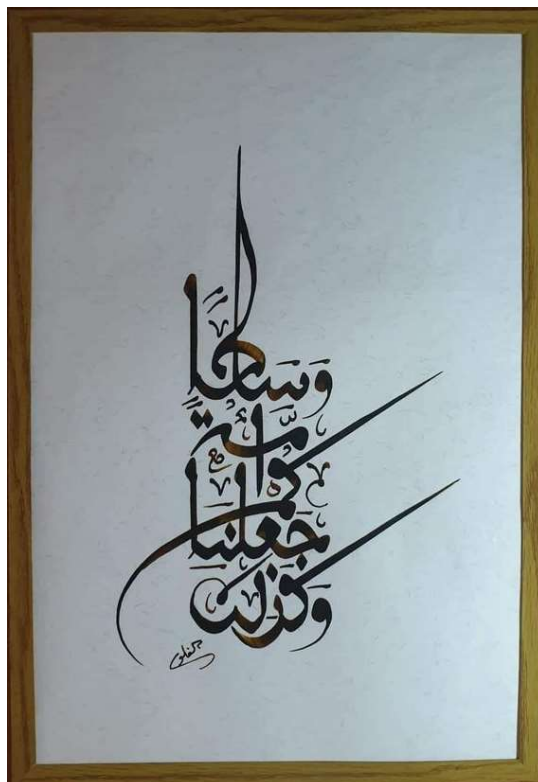 وكذلك
جعلنا
كم أُمَّةً
وَسَطًا